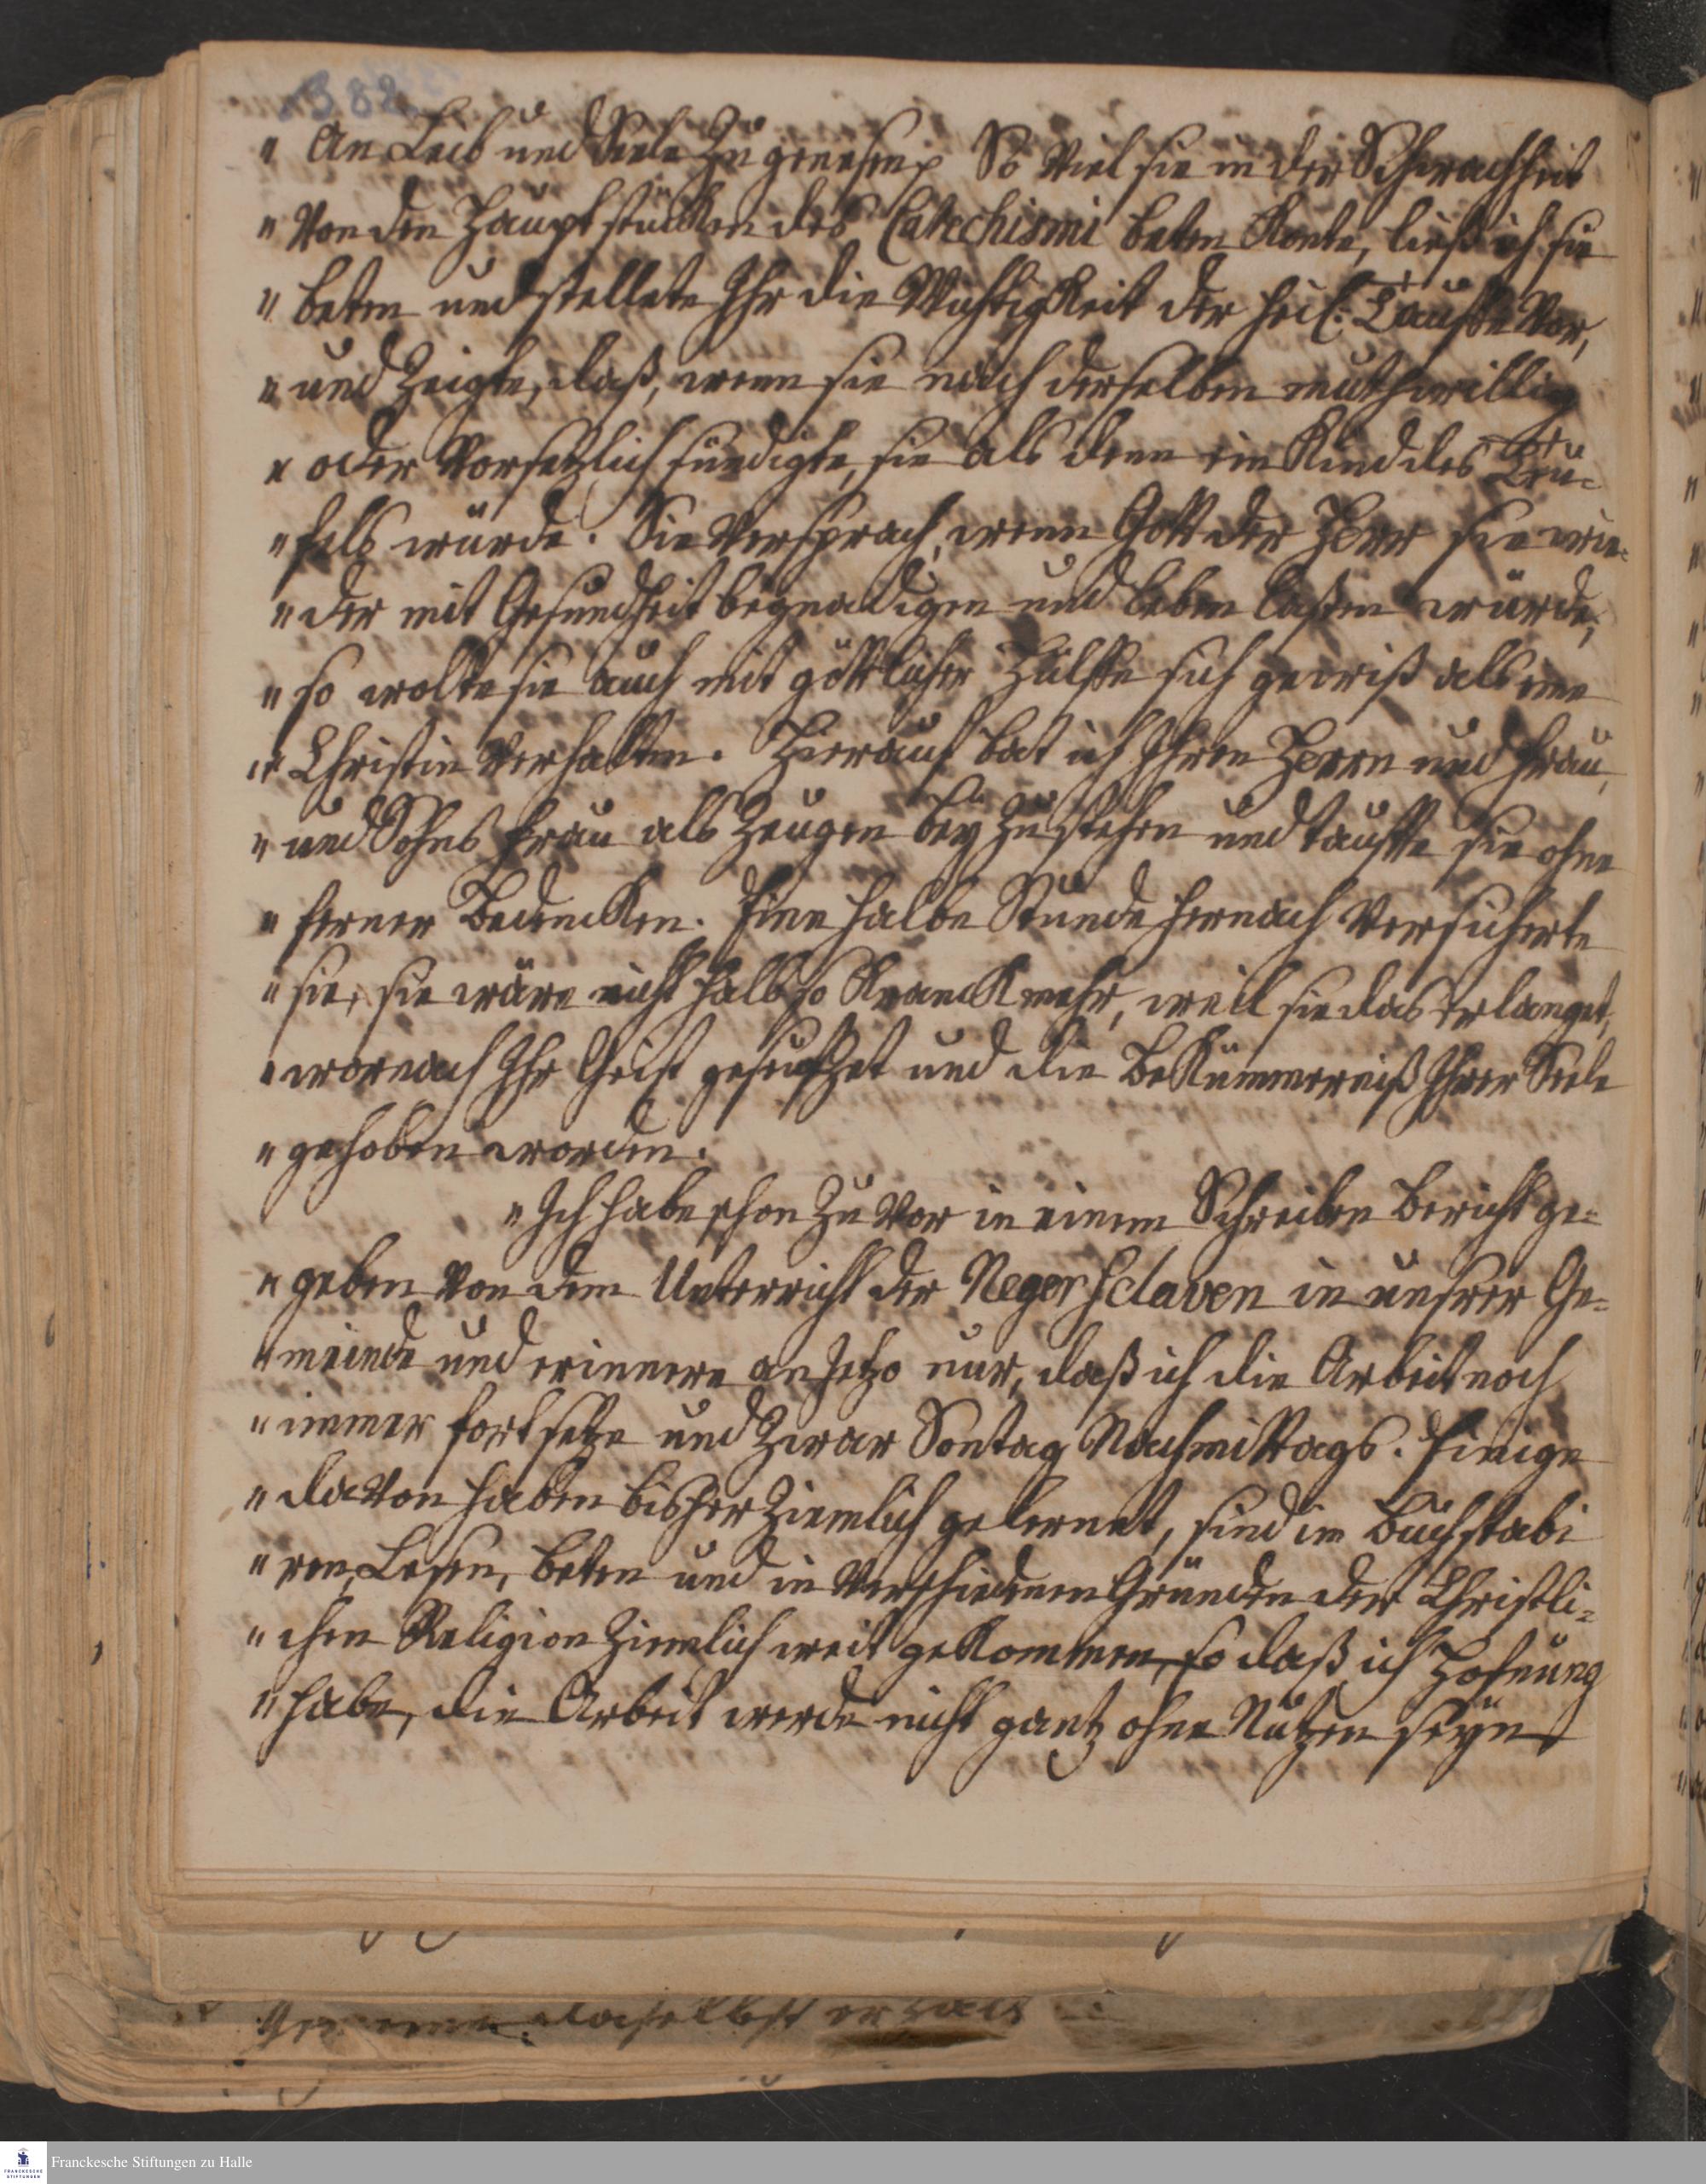 382
" An Leib und Seele zu genesen. So viel sie in der Schwachheit
" von den Hauptstücken des Catechismi beten konte, ließ ich sie
" beten und stellete Ihr die Wichtigkeit der heil: Tauffe vor,
" und zeigte, daß, wenn sie nach derselben muthwillig
" oder vorsetzlich sündigte, sie als denn ein Kind des Teu-
" fels würde. Sie versprach, wenn Gott der Herr sie wie-
" der mit Gesundheit begnadigen und leben laßen würde,
" so wolte sie auch mit göttlicher Hülffe sich gewiß als eine
" Christin verhalten. Hierauf bat ich Ihren Herrn und Frau,
" und Sohns Frau als Zeugen bey zu stehen und tauffte sie ohne
" ferner Bedencken. Eine halbe Stunde hernach versicherte
" sie, sie wäre nicht halb so kranck mehr, weil sie das erlanget,
" wornach Ihr Geist geseufzet und die Bekümmerniß Ihrer Seele
" gehoben worden.
" Ich habe schon zu vor in einem Schreiben Bericht ge-
" geben von dem Unterricht der Neger Sclaven in unsrer Ge-
" meinde und erinnere anjetzo nur, daß ich die Arbeit noch
" immer fortsetze und zwar Sontag Nachmittags. Einige
" davon haben bisher ziemlich gelernet, sind im Buchstabi
" ren, Lesen, beten und in verschiedenen Gründen der Christli-
" chen Religion ziemlich weit gekommen, so daß ich Hofnung
" habe, die Arbeit werde nicht gantz ohne Nutzen seyn
daselbst
FRANCKESCHE STIFTUNGEN
Franckesche Stiftungen zu Halle